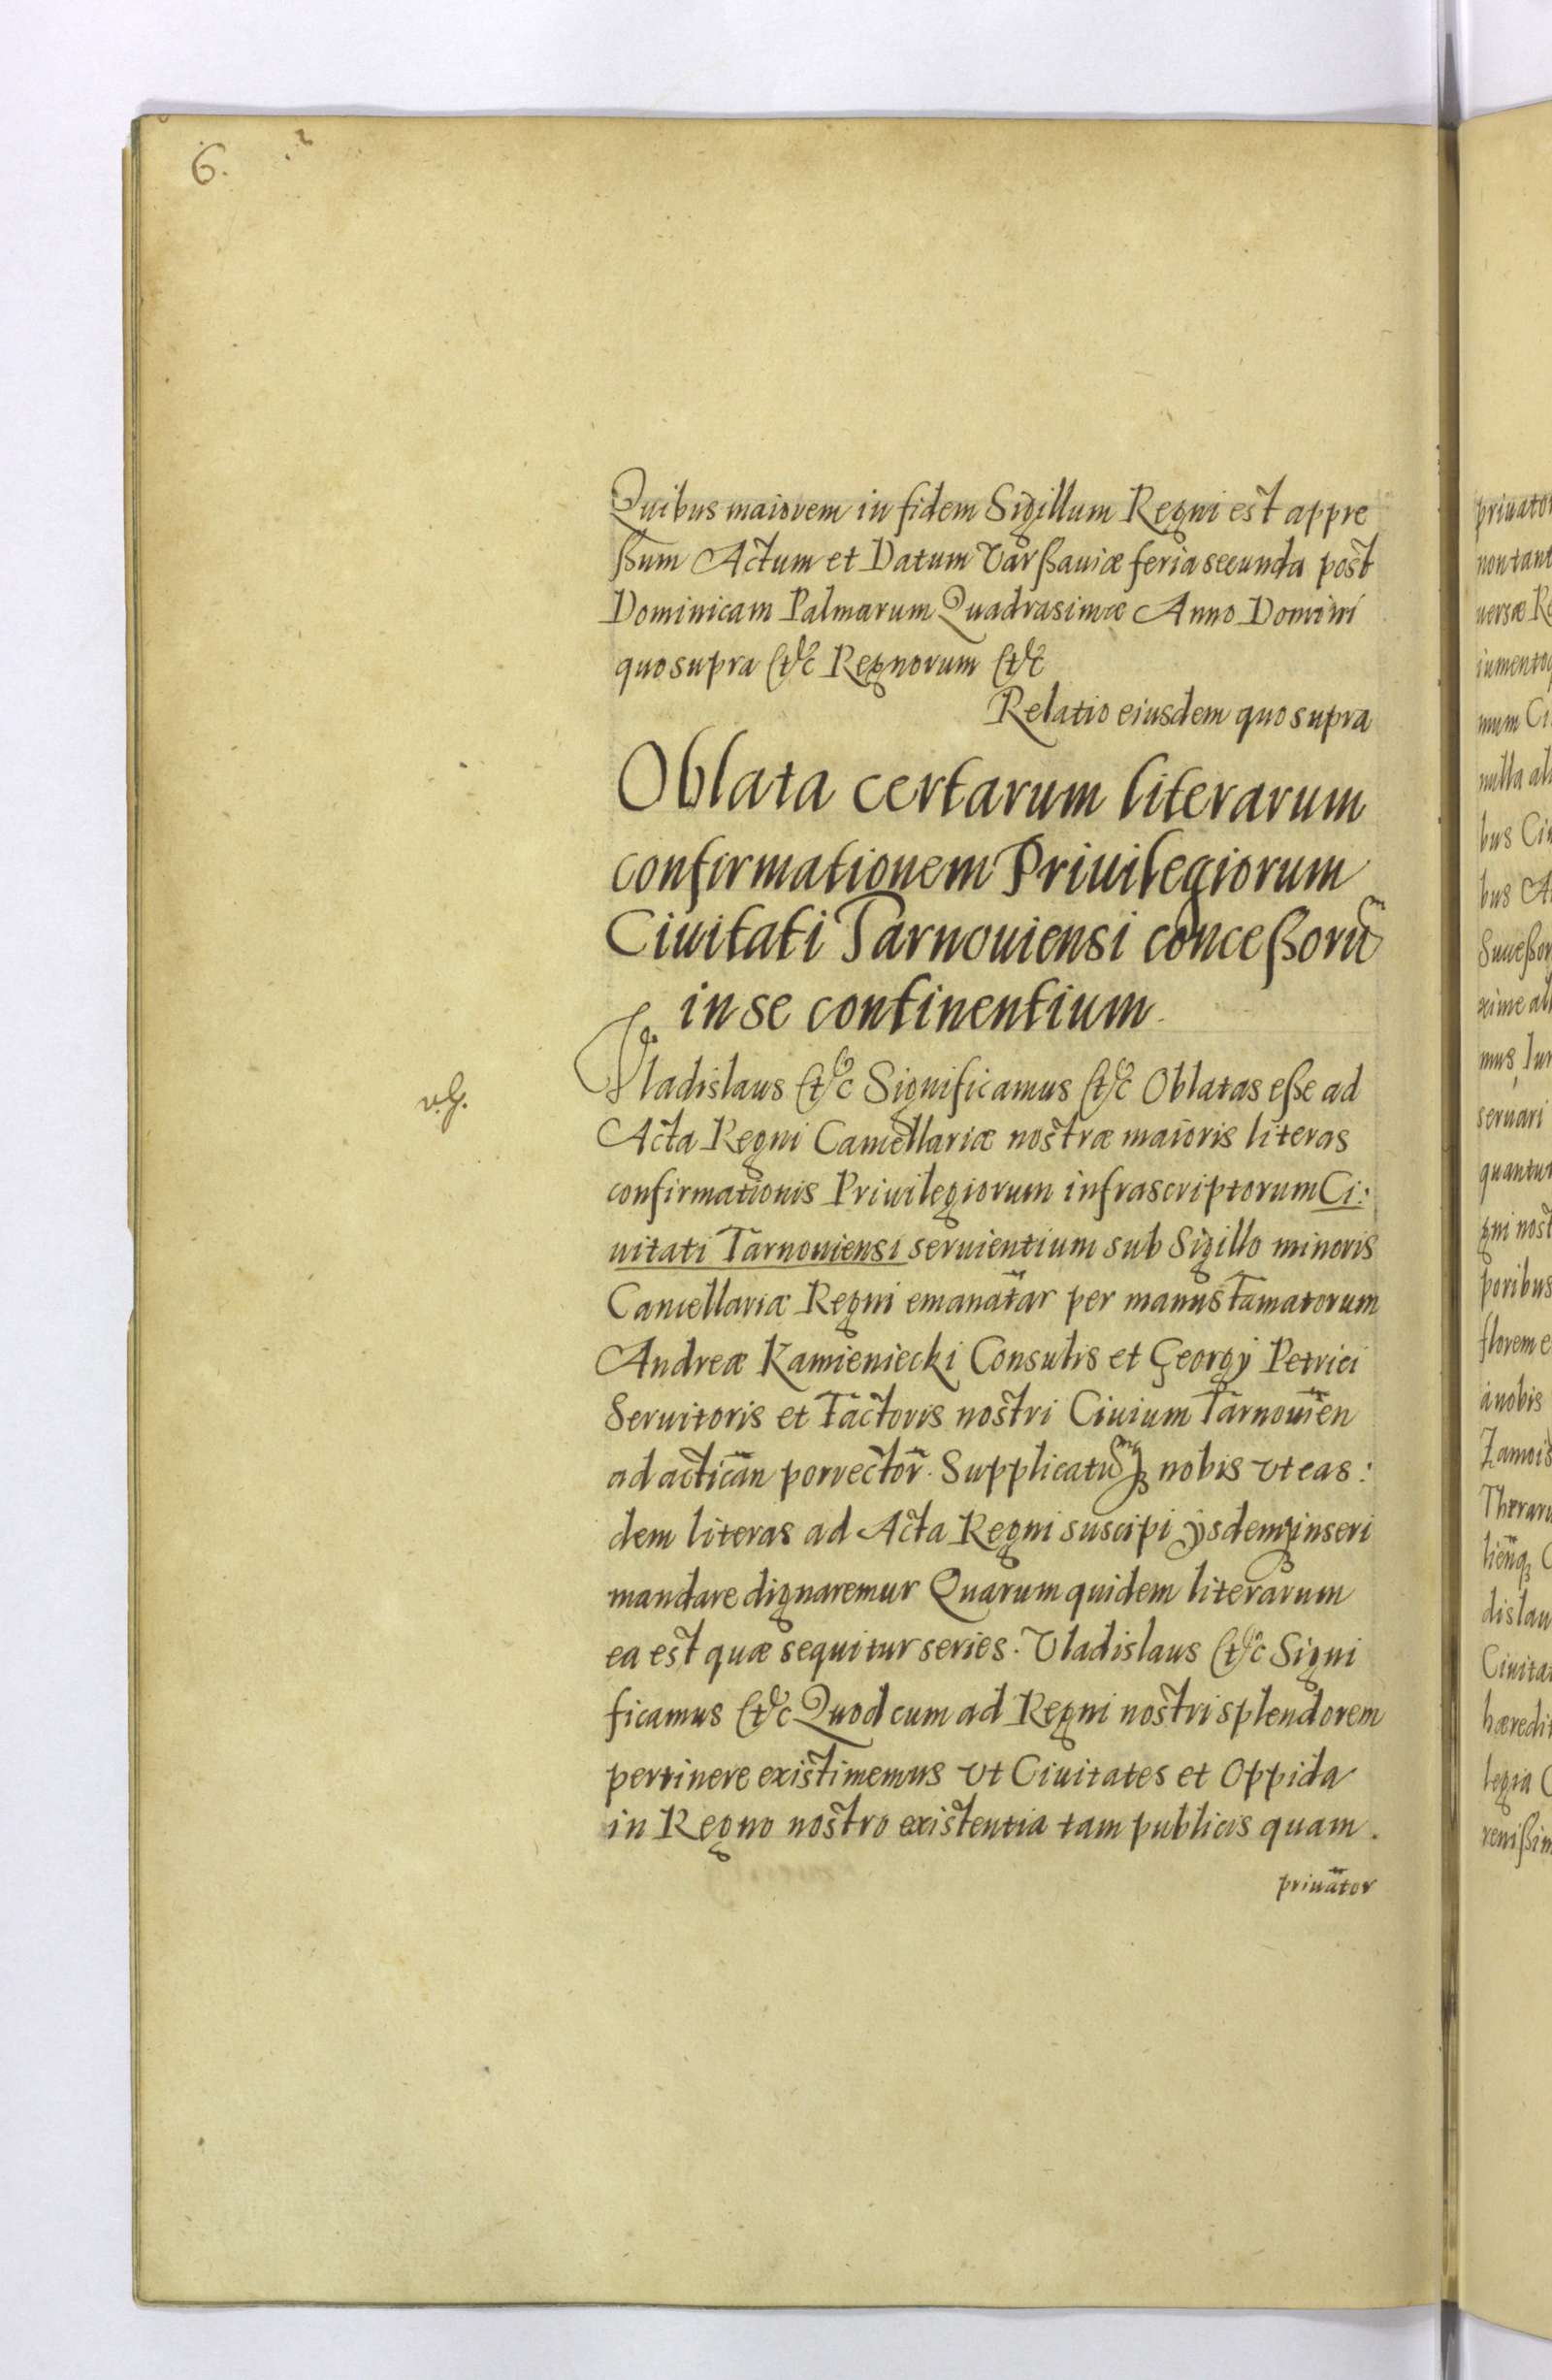 6.
Quibus maiorem in fidem Sigillum Regni est appre
ßum Actum et Datum Varßauiæ feria secunda post
Dominicam Palmarum Quadrasimæ Anno Domini
quo supra &c Regnorum &c
Relatio eiusdem quo supra
Oblata certarum literarum
confirmationem Priuilegiorum
Ciuitati Tarnouiensi conceßorũ
in se continentium
Vladislaus &c Significamus &c Oblatas eße ad
Acta Regni Cancellariæ nostræ maioris literas
confirmationis Priuilegiorum infrascriptorum Ci:
uitati Tarnouiensi seruientium sub Sigillo minoris
Cancellariæ Regni emanat̃ar per manus famatorum
Andreæ Kamieniecki Consulis et Georgÿ Petrici
Seruitoris et Factoris nostri Ciuium Tarnouień
ad acticań porrector̃. Supplicatũq nobis vt eas:
dem literas ad Acta Regni suscipi ÿsdemq inseri
mandare dignaremur Quarum quidem literarum
ea est quæ sequitur series. Vladislaus &c Signi
ficamus &c Quod cum ad Regni nostri splendorem
pertinere existimemus vt Ciuitates et Oppida
in Regno nostro existentia tam publicis quam.
priuãtor
priuator
non tant
uersæ Re
iumento
mum Ci
nulla ali
bus Ci
bus A
Succeßor
xime al
mus Iur
seruari
quantur
gni nost
poribus
florem e
à nobis
Zamois
dislau
Ciuitat
hæredit
legia C
renißim